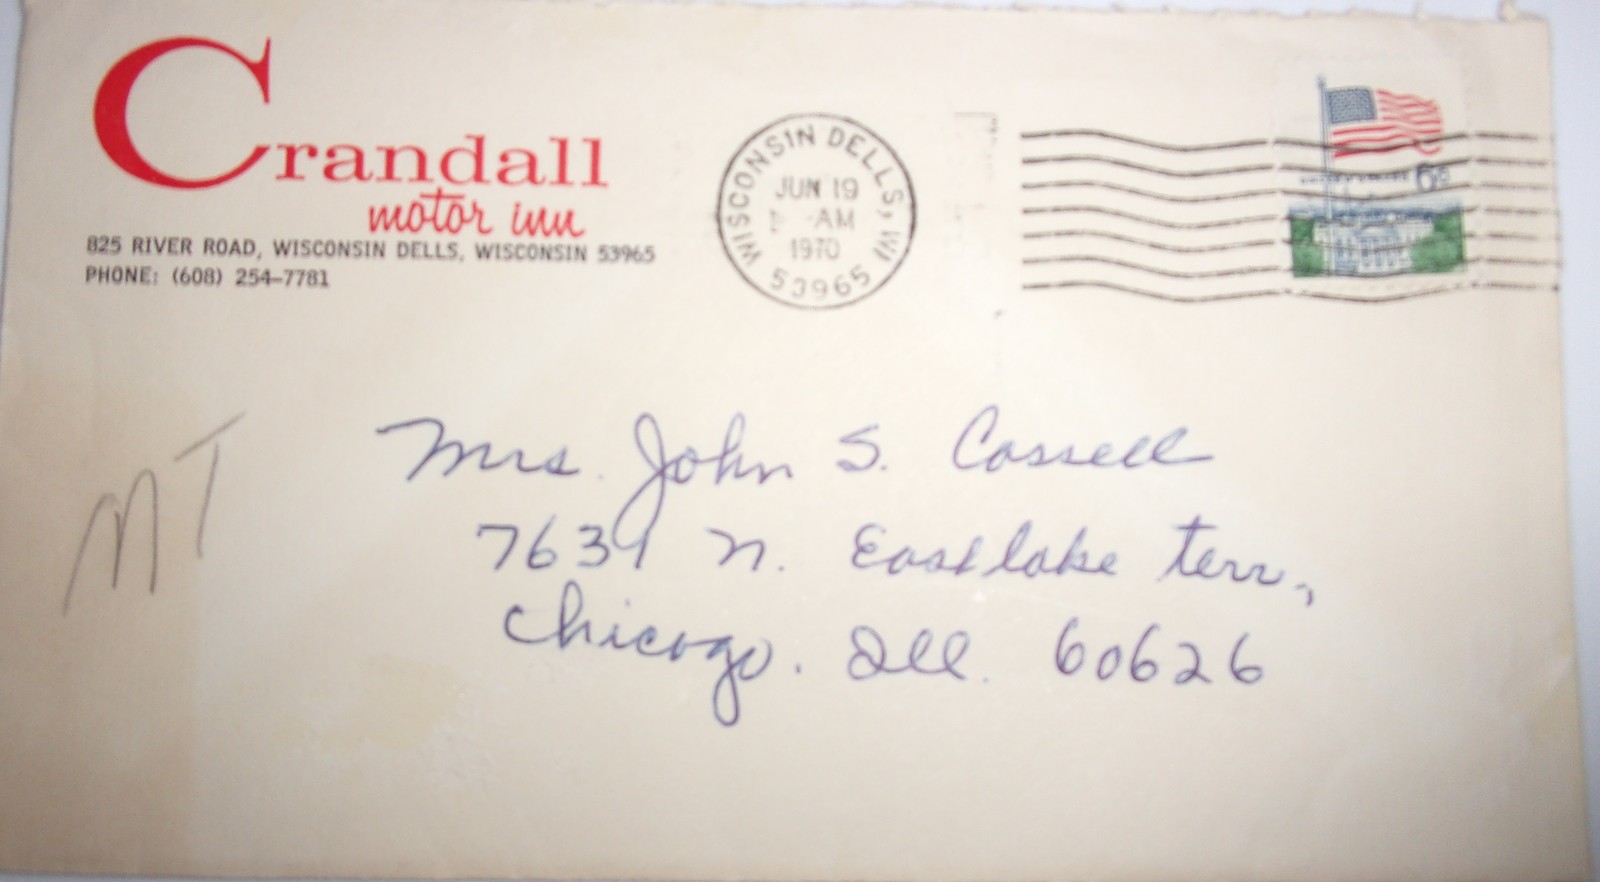 Crandall
motor inn
825 RIVER ROAD, WISCONSIN DELLS, WISCONSIN 53965
PHONE: (608) 254-7781
WISCONSIN DELLS, WI
JUN 19
AM
1970
53965
6¢
MT
Mrs. John S. Cassell
7639 N. Eastlake Terr.,
Chicago. Ill. 60626